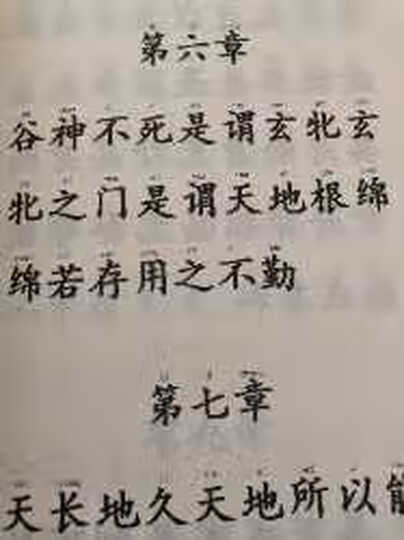 第六章
谷神不死是谓玄牝玄
牝之门是谓天地根绵
绵若存用之不勤
第七章
天长地久天地所以能